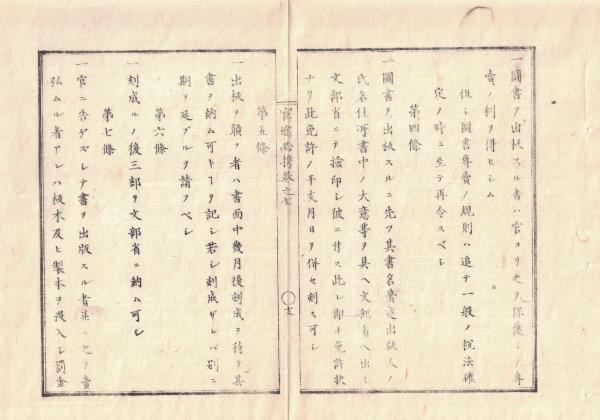 一圖書ヲ出板スル者ハ官ヨリ之ヲ保護シテ專
賣ノ利ヲ得セシム
但シ圖書專賣ノ規則ハ追テ一般ノ稅法確
定ノ時ニ至テ再令スベシ
第四條
一圖書ヲ出板スルニ先ツ其書名著述出版人ノ
氏名住所書中ノ大意等ヲ具ヘ文部省ヘ出シ
文部省ニテ檢印シ彼ニ付ス此レ即チ免許狀
ナリ此免許ノ干支月日ヲ併セ刻ス可シ
官途必携巻之七
第五條
一出板ヲ願フ者ハ書面中幾月後刻成ヲ待テ其
書ヲ納ム可キヿヲ記シ若シ刻成ザレバ別ニ
期ヲ延ブルヲ請フベシ
第六條
一刻成ルノ後三部ヲ文部省ニ納ム可シ
第七條
一官ニ告ゲズシテ書ヲ出版スル者 之ヲ賣
弘ムル者アレハ板木及ヒ製本ヲ沒入シ罰金